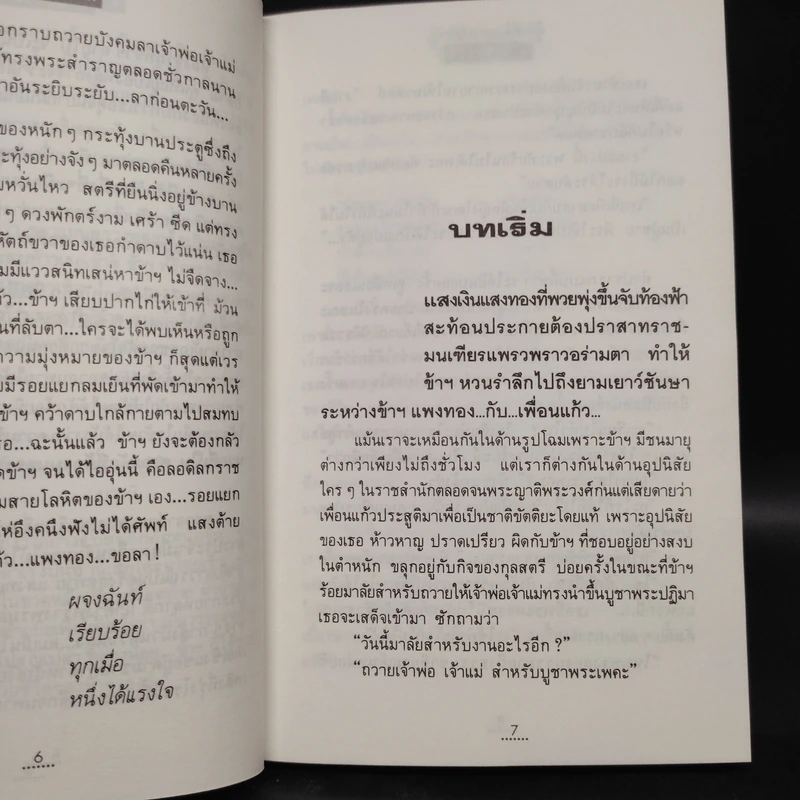 อกราบถวายบังคมลาเจ้าพ่อเจ้าแม่
ทรงพระสำราญตลอดชั่วกาลนาน
อันระยิบระยับ...ลาก่อนตะวัน...
ของหนักๆ กระทุ้งบานประตูซึ่งถึง
ะทุ้งอย่างจังๆ มาตลอดคืนหลายครั้ง
หวั่นไหว สตรีที่ยืนนิ่งอยู่ข้างบาน
ๆ ดวงพักตร์งาม เศร้า ซีด แต่ทรง
หัตถ์ขวาของเธอกำดาบไว้แน่น เธอ
มมีแววสนิทเสน่หาข้าฯ ไม่จืดจาง...
ว...ข้าฯ เสียบปากไก่ให้เข้าที่ ม้วน
นที่ลับตา...ใครจะได้พบเห็นหรือถูก
ความมุ่งหมายของข้าฯ ก็สุดแต่เวร
มีรอยแยกลมเย็นที่พัดเข้ามาทำให้
ข้าฯ คว้าดาบใกล้กายตามไปสมทบ
รอ...ฉะนั้นแล้ว ข้าฯ ยังจะต้องกลัว
ดข้าฯ จนได้ไออุ่นนี้ คือลอดิลกราช
มสายโลหิตของข้าฯ เอง...รอยแยก
ห่อึงคนึงฟังไม่ได้ศัพท์ แสงต้าย
ว...แพงทอง...ขอลา!
ผจงฉันท์
เรียบร้อย
ทุกเมื่อ
หนึ่งได้แรงใจ
6
บทเริ่ม
แสงเงินแสงทองที่พวยพุ่งขึ้นจับท้องฟ้า
สะท้อนประกายต้องปราสาทราช-
มนเฑียรแพรวพราวอร่ามตา ทำให้
ข้าฯ หวนรำลึกไปถึงยามเยาว์ชันษา
ระหว่างข้าฯ แพงทอง...กับ...เพื่อนแก้ว...
แม้นเราจะเหมือนกันในด้านรูปโฉมเพราะข้าฯ มีชนมายุ
ต่างกว่าเพียงไม่ถึงชั่วโมง แต่เราก็ต่างกันในด้านอุปนิสัย
ใครๆ ในราชสำนักตลอดจนพระญาติพระวงศ์ก่นแต่เสียดายว่า
เพื่อนแก้วประสูติมาเพื่อเป็นชาติขัตติยะโดยแท้ เพราะอุปนิสัย
ของเธอ ห้าวหาญ ปราดเปรียว ผิดกับข้าฯ ที่ชอบอยู่อย่างสงบ
ในตำหนัก ขลุกอยู่กับกิจของกุลสตรี บ่อยครั้งในขณะที่ข้าฯ
ร้อยมาลัยสำหรับถวายให้เจ้าพ่อเจ้าแม่ทรงนำขึ้นบูชาพระปฏิมา
เธอจะเสด็จเข้ามา ซักถามว่า
"วันนี้มาลัยสำหรับงานอะไรอีก ?"
"ถวายเจ้าพ่อ เจ้าแม่ สำหรับบูชาพระเพคะ"
7